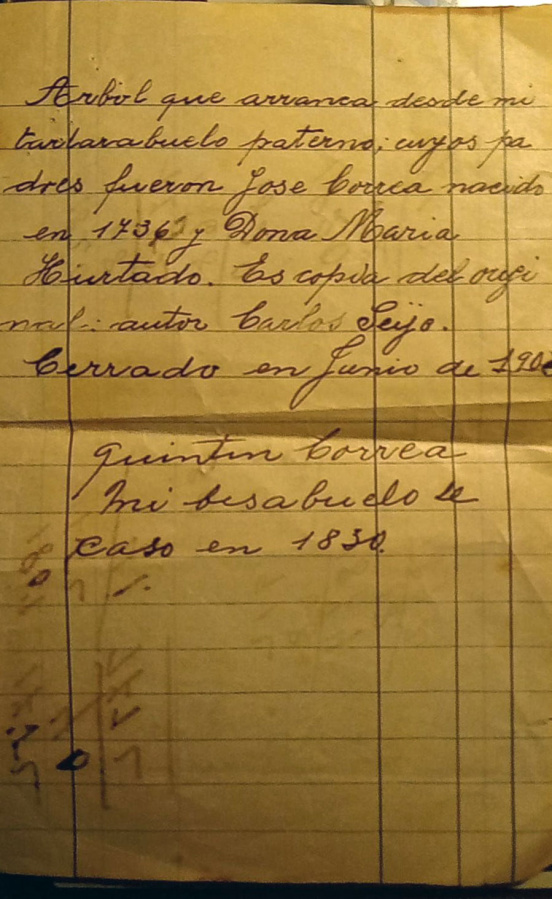 Arbol que arranca desde mi
tartarabuelo paterno; cuyos pa
dres fueron Jose Correa nacido
en 1736 y Dona Maria
Hurtado. Es copia del origi
nal: autor Carlos Seijo.
Cerrado en Junio de 190
Quintin Correa
mi bisabuelo se
caso en 1830.